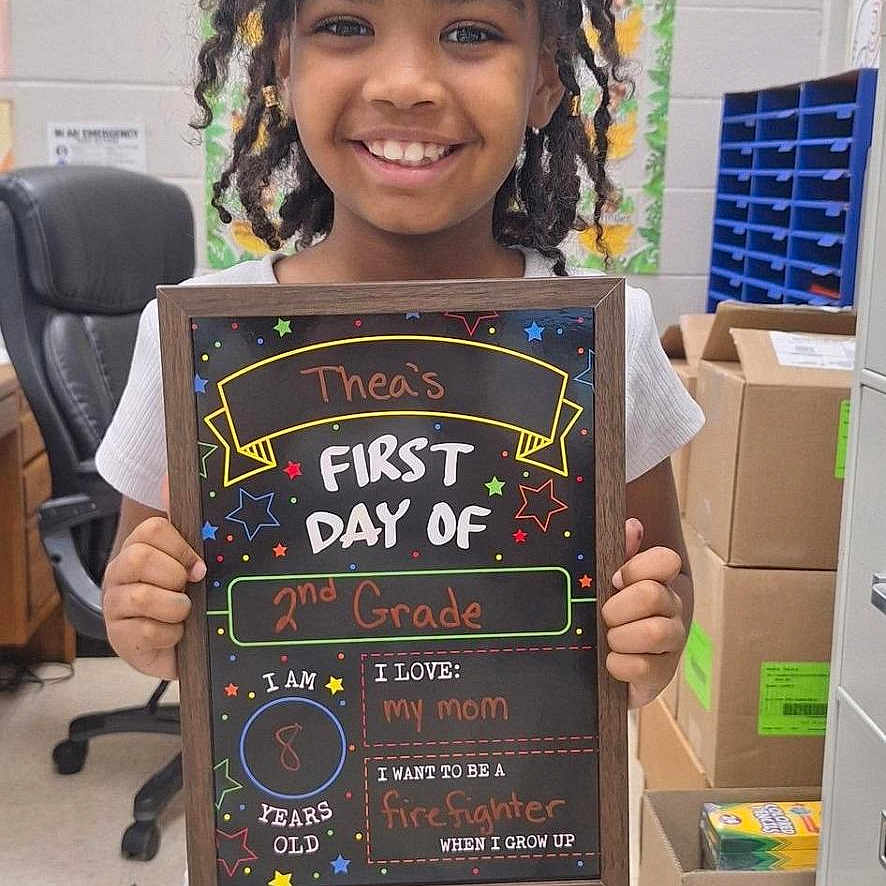 IN AN EMERGENCY
Thea's
FIRST
DAY OF
2nd Grade
I AM
8
YEARS
OLD
I LOVE:
my mom
I WANT TO BE A
firefighter
WHEN I GROW UP